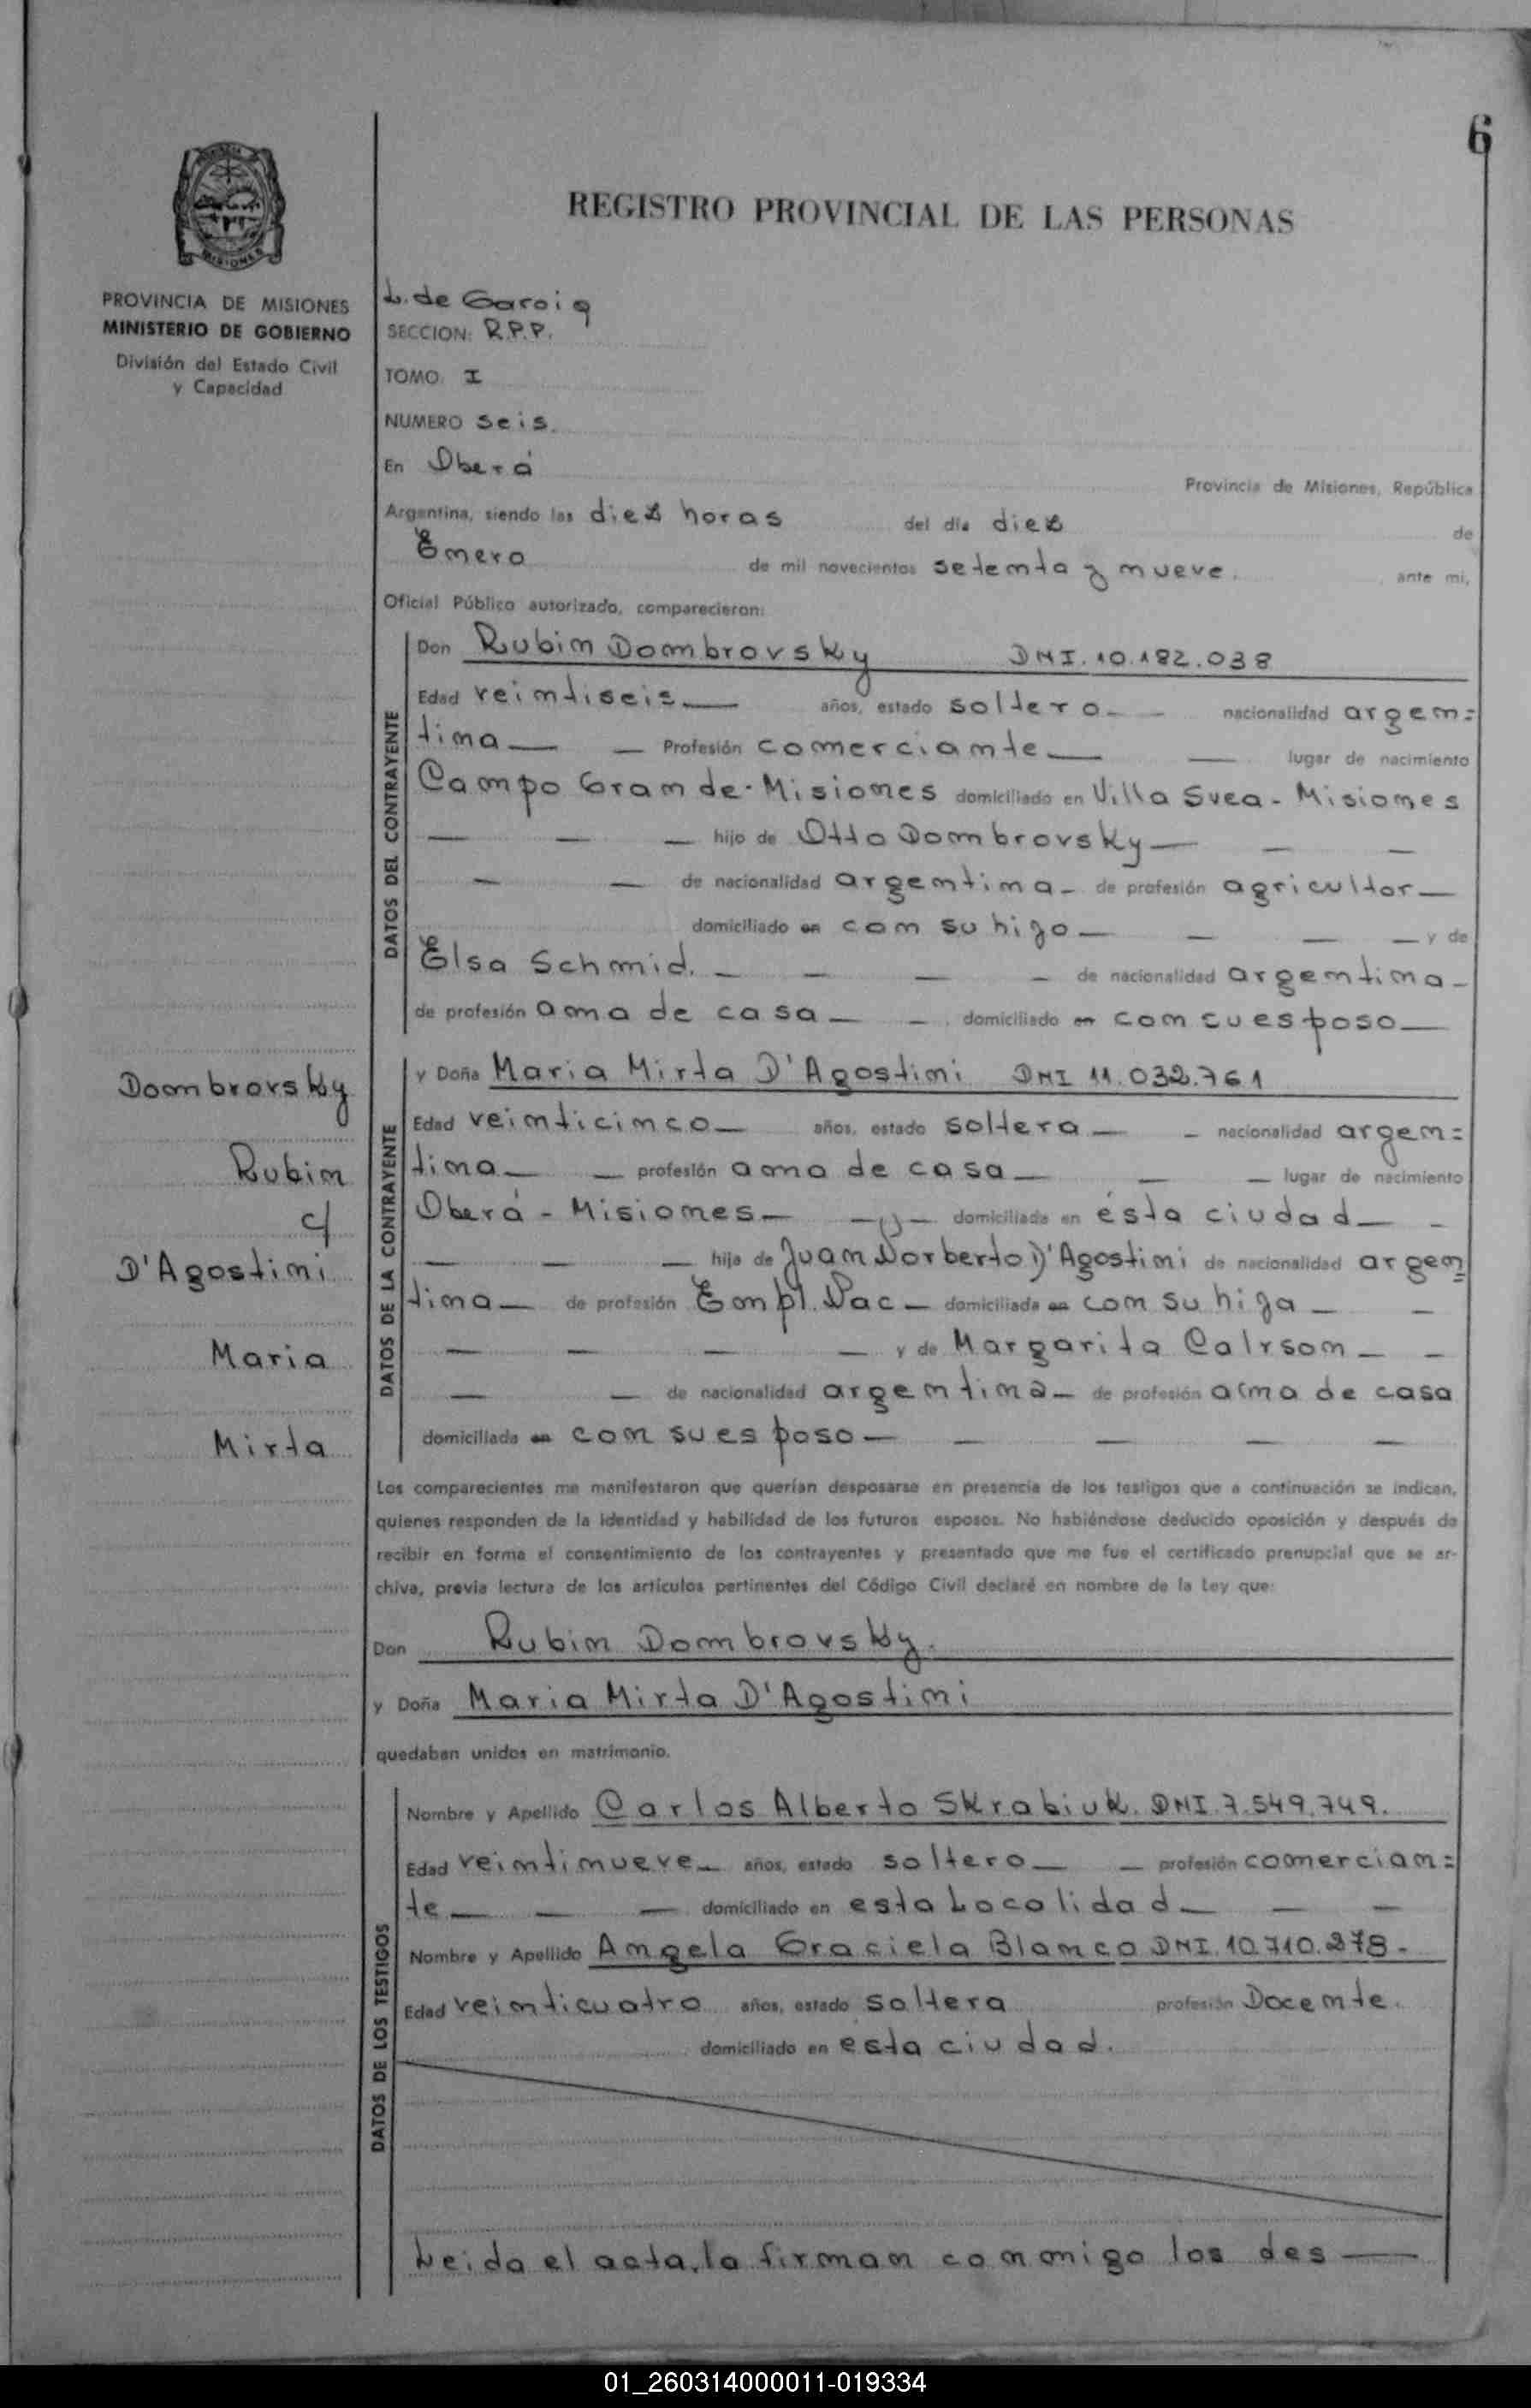 6
REGISTRO PROVINCIAL DE LAS PERSONAS
MISIONES
PROVINCIA DE MISIONES
MINISTERIO DE GOBIERNO
División del Estado Civil
y Capacidad
L. de Garcia
SECCION: R.P.P.
TOMO I
NUMERO seis.
En Oberá Provincia de Misiones, República
Argentina, siendo las diez horas del día diez de
Enero de mil novecientos setenta y nueve. ante mi,
Oficial Público autorizado, comparecieron:
DATOS DEL CONTRAYENTE
Don Rubin Dombrovsky DNI. 10.182.038
Edad veintiseis — años, estado soltero — — nacionalidad argen=
tina — — Profesión comerciante — — lugar de nacimiento
Campo Grande - Misiones domiciliado en Villa Svea - Misiones
— — — hijo de Otto Dombrovsky — — —
— — de nacionalidad argentina — de profesión agricultor —
domiciliado en con su hijo — — — — y de
Elsa Schmid. — — — — de nacionalidad argentina —
de profesión ama de casa — — domiciliado en con su esposo —
DATOS DE LA CONTRAYENTE
y Doña Maria Mirta D'Agostini DNI 11.032.761
Edad veinticinco — años, estado soltera — — nacionalidad argen=
tina — — profesión ama de casa — — — lugar de nacimiento
Oberá - Misiones — — domiciliada en ésta ciudad — —
— — — hija de Juan Norberto D'Agostini de nacionalidad argen=
tina — de profesión Empl. Nac — domiciliada en con su hija — —
— — — — y de Margarita Calrson — —
— — de nacionalidad argentina — de profesión ama de casa
domiciliada en con su esposo — — — — —
Dombrovsky
Rubin
c/
D'Agostini
Maria
Mirta
Los comparecientes me manifestaron que querían desposarse en presencia de los testigos que a continuación se indican,
quienes responden de la identidad y habilidad de los futuros esposos. No habiéndose deducido oposición y después de
recibir en forma el consentimiento de los contrayentes y presentado que me fue el certificado prenupcial que se ar-
chiva, previa lectura de los artículos pertinentes del Código Civil declaré en nombre de la Ley que:
Don Rubin Dombrovsky.
y Doña Maria Mirta D'Agostini
quedaban unidos en matrimonio.
DATOS DE LOS TESTIGOS
Nombre y Apellido Carlos Alberto Skrabiuk. DNI. 7.549.749.
Edad veintinueve — años, estado soltero — — profesión comercian=
te — — — domiciliado en esta Localidad — — —
Nombre y Apellido Angela Graciela Blanco DNI. 10.710.278.
Edad veinticuatro años, estado soltera profesión Docente.
domiciliado en esta ciudad.
Leida el acta, la firman conmigo los des —
01_260314000011-019334